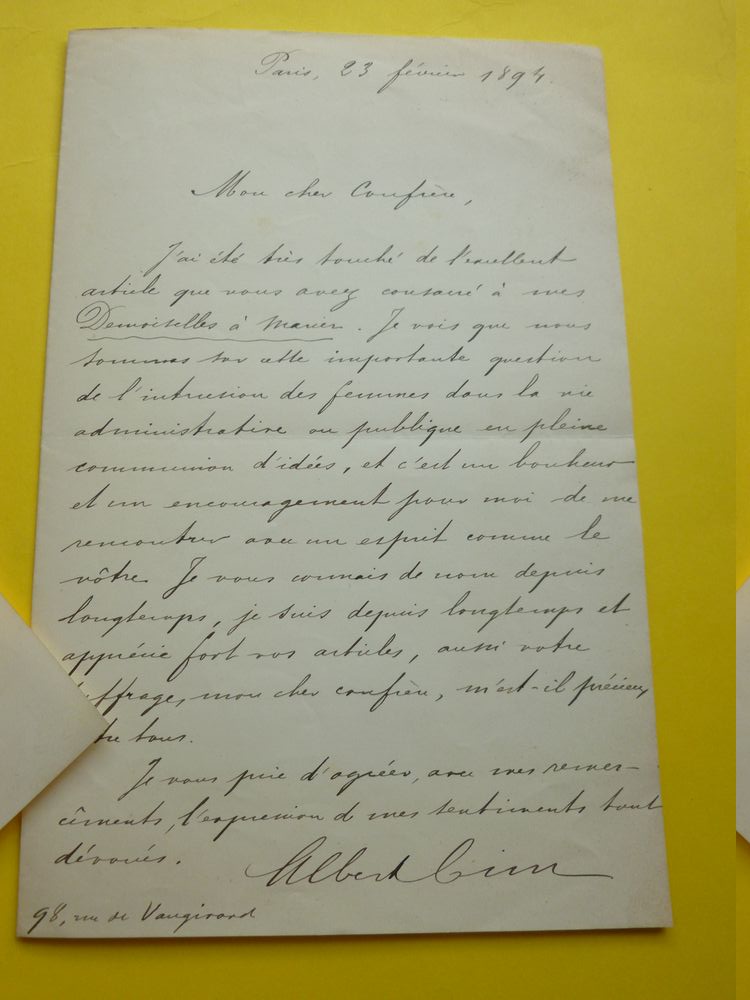 Paris, 23 février 1894.
Mon cher Confrère,
J'ai été très touché de l'excellent
article que vous avez consacré à mes
Demoiselles à marier. Je vois que nous
sommes sur cette importante question
de l'intrusion des femmes dans la vie
administrative ou publique en pleine
communion d'idées, et c'est un bonheur
et un encouragement pour moi de me
rencontrer avec un esprit comme le
vôtre. Je vous connais de nom depuis
longtemps, je suis depuis longtemps et
apprécie fort vos articles, aussi votre
suffrage, mon cher confrère, m'est-il précieux
tous.
Je vous prie d'agréer, avec mes remer-
cîments, l'expression de mes sentiments tout
dévoués.
Albert Cim
98, rue de Vaugirard